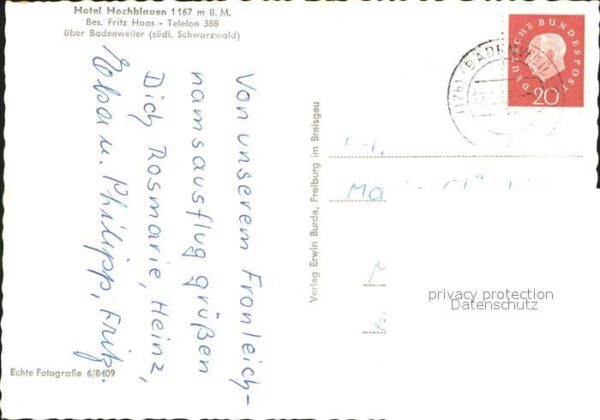 Hotel Hochblauen 1167 m ü. M,
Bes. Fritz Haas - Telefon 388
über Badenweiler (südl. Schwarzwald)
Von unserem Fronleich-
namsausflug grüßen
Dich Rosmarie, Heinz,
u. Philipp, Fritz.
Echte Fotografie 6/8409
Verlag Erwin Burda, Freiburg im Breisgau
DEUTSCHE BUNDESPOST
20
(17b) BADENWEILER
Frl.
privacy protection
Datenschutz